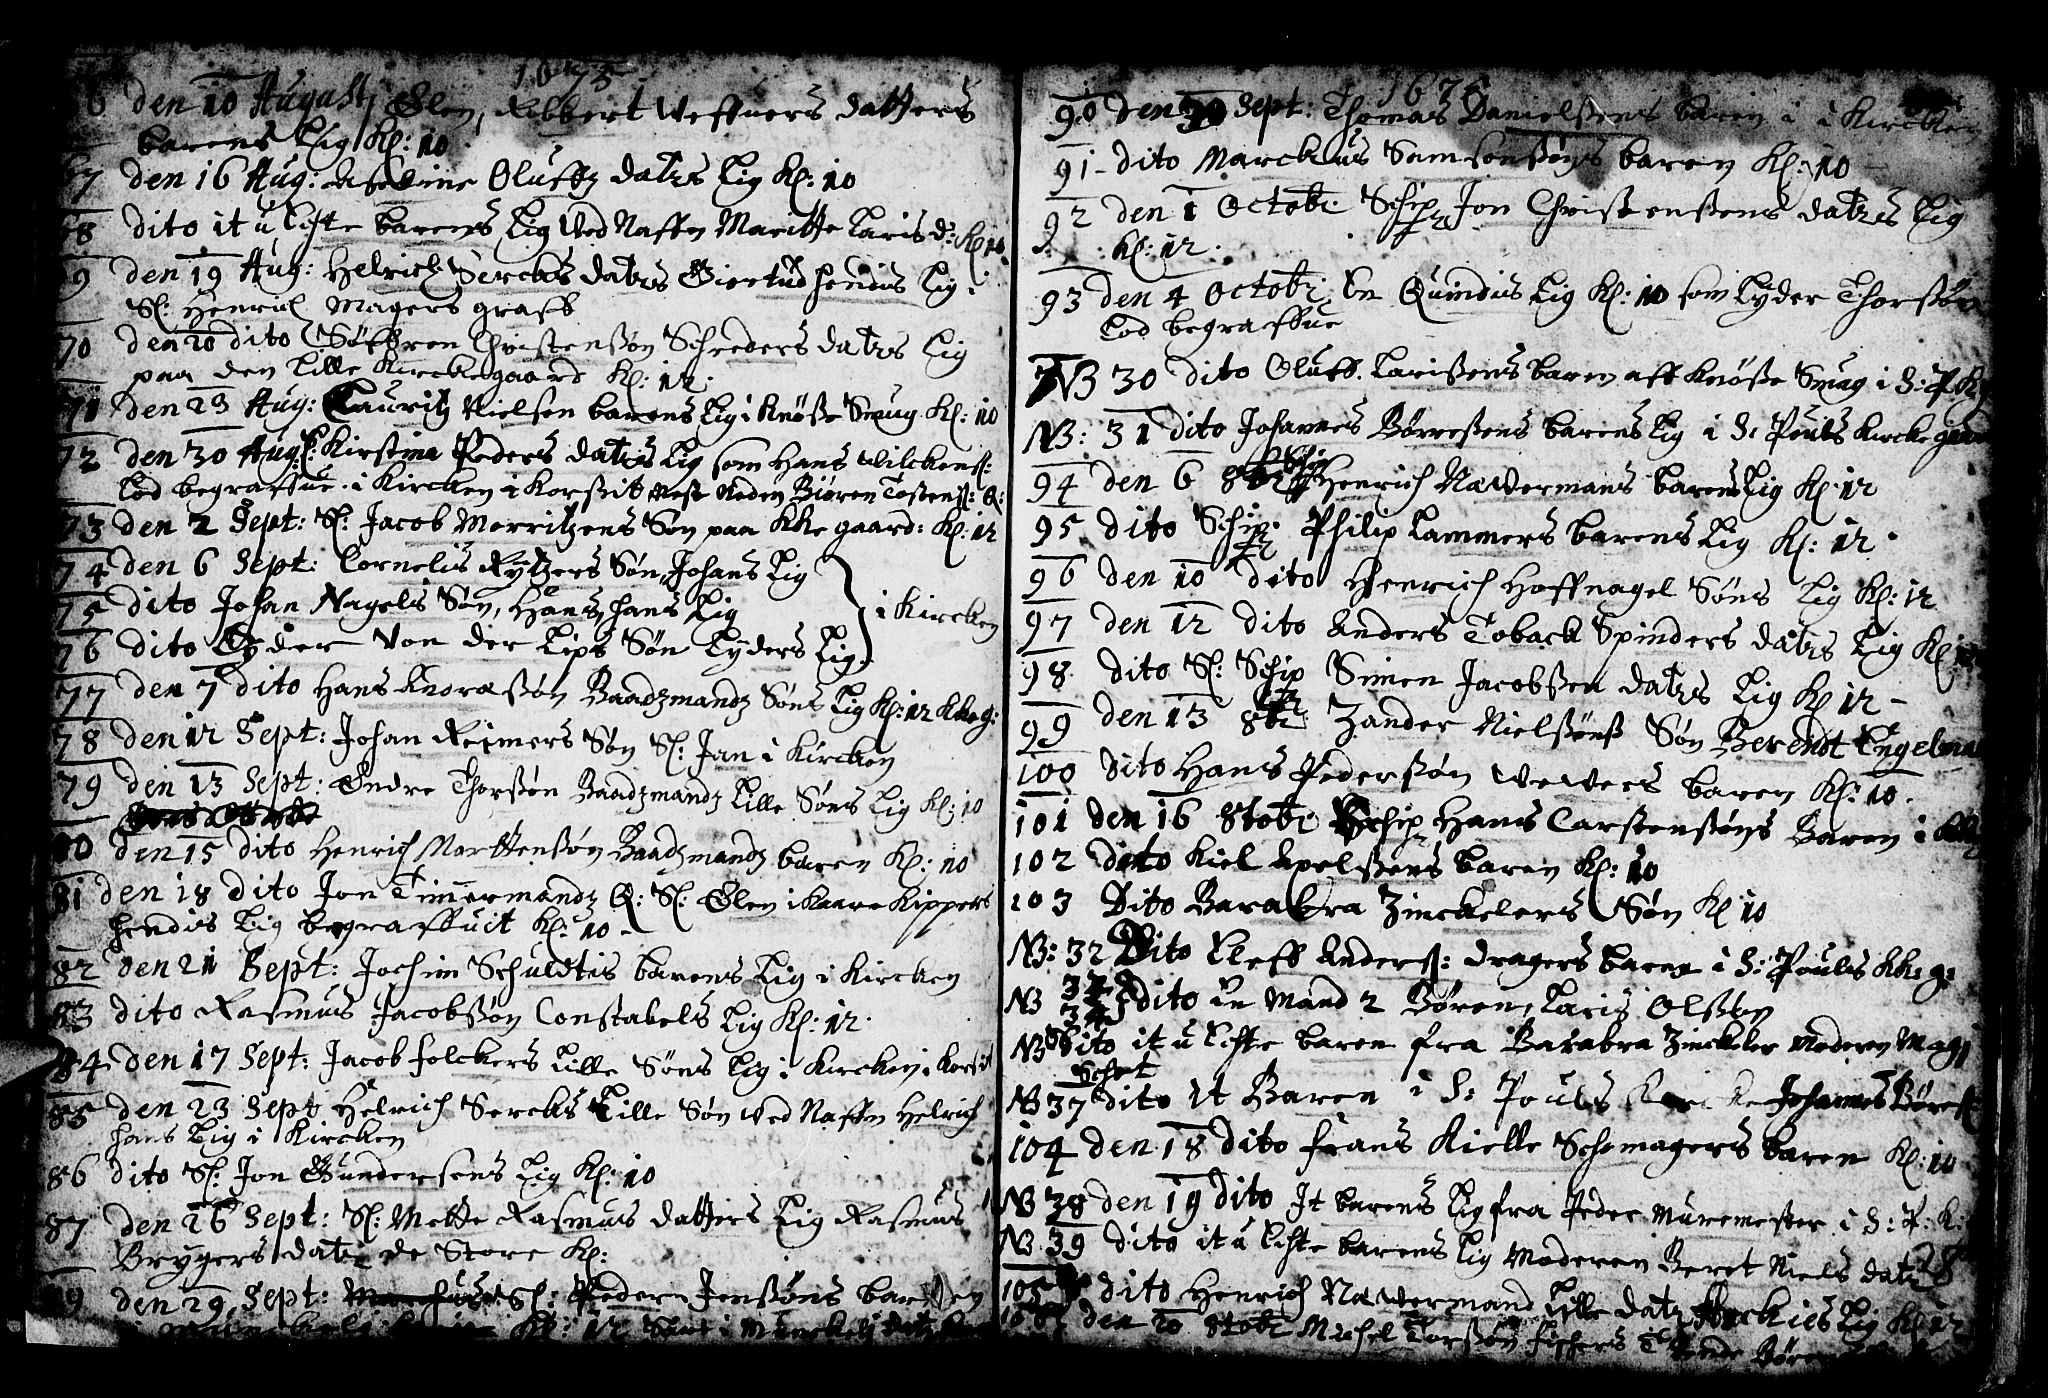 1675
6 den 10 Augusti, Elen, Robbert Weffuers datters
barens Lig Kl: 10
67 den 16 Aug: Oluffz datrs Lig Kl: 10
68 dito it u Echte barens Lig Ved Naffn Maritte Laris d: Kl 10
69 den 19 Aug: Helrich Sercks datrs Giertud hendis Lig i
Sl: Henrich Magers graff
70 den 20 dito Søffren Christensøn Schreders datrs Lig
paa den Lille Kirckegaard Kl: 12
71 den 23 Aug: Lauritz Nielsen barens Lig i Knøße Smug Kl: 10
72 den 30 Aug: Sl: Kirstina Peders datrs Lig som Hans Wilckenß:
Lod begraffue i Kircken i Korßit nest neden Biøren Toßenß: Q:
73 den 2 Sept: Sl: Jacob Morritzens Søn paa KKe gaard: Kl: 12
74 den 6 Sept: Cornelis Rytzers Søn, Johans Lig
75 dito Johan Nagels Søn, Hans, hans Lig
i Kircken
76 dito Lyder Von der Lips Søn Lyders Lig
77 den 7 dito Hans Knoræßøn Baadzmandz Søns Lig Kl: 12 KKe g:
78 den 12 Sept: Johan Reimers Søn Sl: Jan i Kircken
79 den 13 Sept: Endre Thorßøn Baadzmandz Lille Søns Lig Kl: 10
80 den 15 dito Henrich Mortensøn Baadzmandz baren Kl: 10
81 den 18 dito Jon Timmermandz Q: Sl: Elen i Kaare Kippers
hendis Lig begraffuit Kl: 10
82 den 21 Sept: Jochim Schuldtis barens Lig i Kircken
83 dito Rasmus Jacobßøn Constabels Lig Kl: 12
84 den 17 Sept: Jacob folckers Lille Søns Lig i Kircken i Korsit
85 den 23 Sept Helrich Sercks Lille Søn Ved Naffn Helrich
hans Lig i Kircken
86 dito Sl: Jon Gundersens Lig Kl: 10
87 den 26 Sept: Sl: Mette Rasmus datters Lig Rasmus
Brygers datr de Store Kl:
89 den 29 Sept: Sl: Peder Jenßøns baren
Kl: 12
167
90 den 30 Sept: Thomas Danielßens baren i Kircken
91 dito Marckus Samsonsøns baren Kl: 10
92 den 1 Octobr: Schipr Jon Christenßens datrs Lig
Kl: 12
93 den 4 Octobr: En Quindis Lig Kl: 10 som Lyder Thorßøn
Lod begraffue
NB 30 dito Oluff Larißens baren aff Knøße Smug i S: P: K
NB: 31 dito Johannes Børreßens barens Lig i S: Pouls Kircke gaard
94 den 6 8br Schipr Henrich Nævermans barens Lig Kl: 12
95 dito Schipr Philip Lammers barens Lig Kl: 12
96 den 10 dito Henrich Hoffnagel Søns Lig Kl: 12
97 den 12 dito Anders Toback Spinders datrs Lig Kl
98 dito Sl: Schipr Simen Jacobßen datrs Lig Kl 12
99 den 13 8br Zander Nielßøns Søn Berendt Engelma
100 dito Hans Pederßøn Wevers baren Kl: 10
101 den 16 8tobr Schipr Hans Carstenßøns Baren i KKe
102 dito Kiel Apelßens baren Kl: 10
103 Dito Barabra Zinckelers Søn Kl 10
NB: 32 Dito Eleff Anderß: dragers baren i S: Pouls KK: g:
NB 33 34 dito En Mand 2 Børen, Laris Olßøn
NB dito it u Echte baren fra Barabra Zinckeler Moderen Mag
Schot
NB 37 dito it Baren i S: Pouls Johannes Børeß
104 den 18 dito frans Kielle Schomagers baren Kl: 10
NB 38 den 19 dito It barens Lig fra Peder Muremester i S: P: K:
NB 39 dito it u Echte barens Lig Moderen Beret Niels datr
105 dito Henrich Nævermand Lille datr Lig Kl 12
106 den 20 8tobr Michel Torßøn fischers Børen